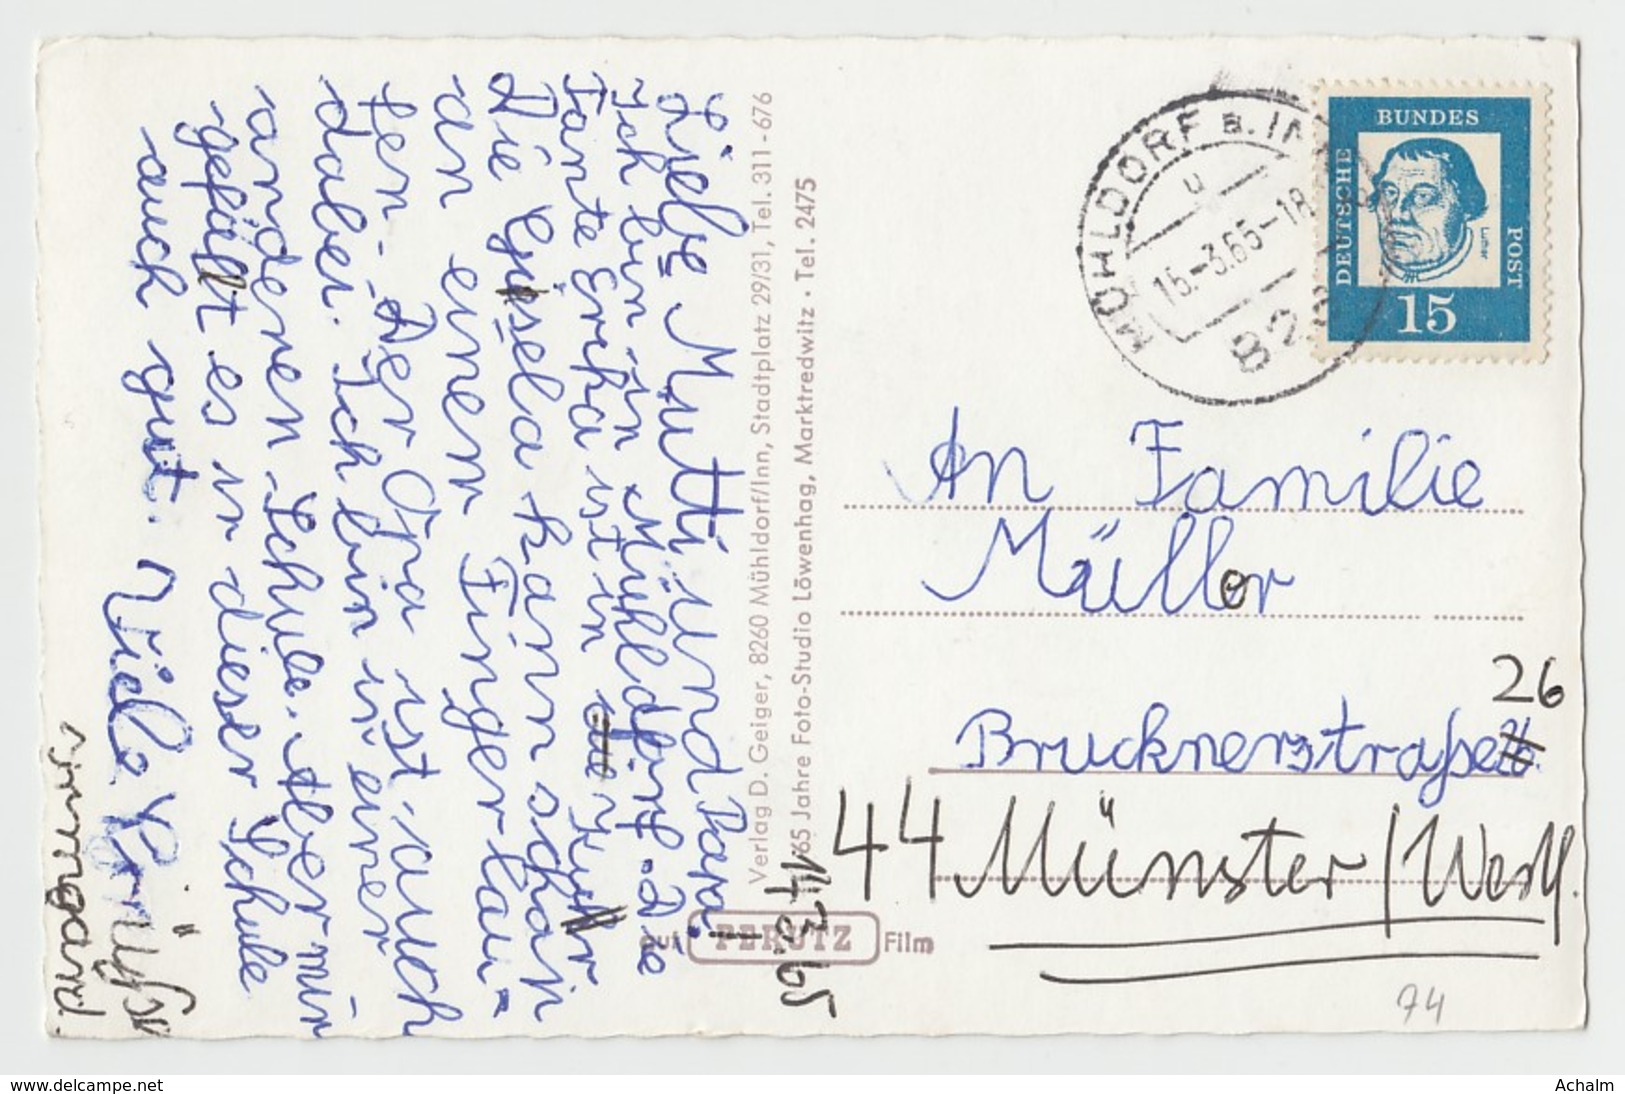 Liebe Mutti und Papa.
Ich bin in Mühldorf. Die
Tante Erika ist in
Die Gisela kann schon
an einen Finger lau=
fen. Der Opa ist auch
dabei. Ich bin in einer
anderen Schule. Aber mir
gefällt es in dieser Schule
auch gut. Viele Grüße
Irmgard.
14.3.65
Verlag D. Geiger, 8260 Mühldorf/Inn, Stadtplatz 29/31, Tel. 311-676
65 Jahre Foto-Studio Löwenhag, Marktredwitz · Tel. 2475
auf PERUTZ Film
MÜHLDORF a. INN
u
15.-3.65-18
826
DEUTSCHE
BUNDES
POST
Luther
15
An Familie
Müller
Brucknerstraße
26
44 Münster/Westf.
74
www.delcampe.net
Achalm